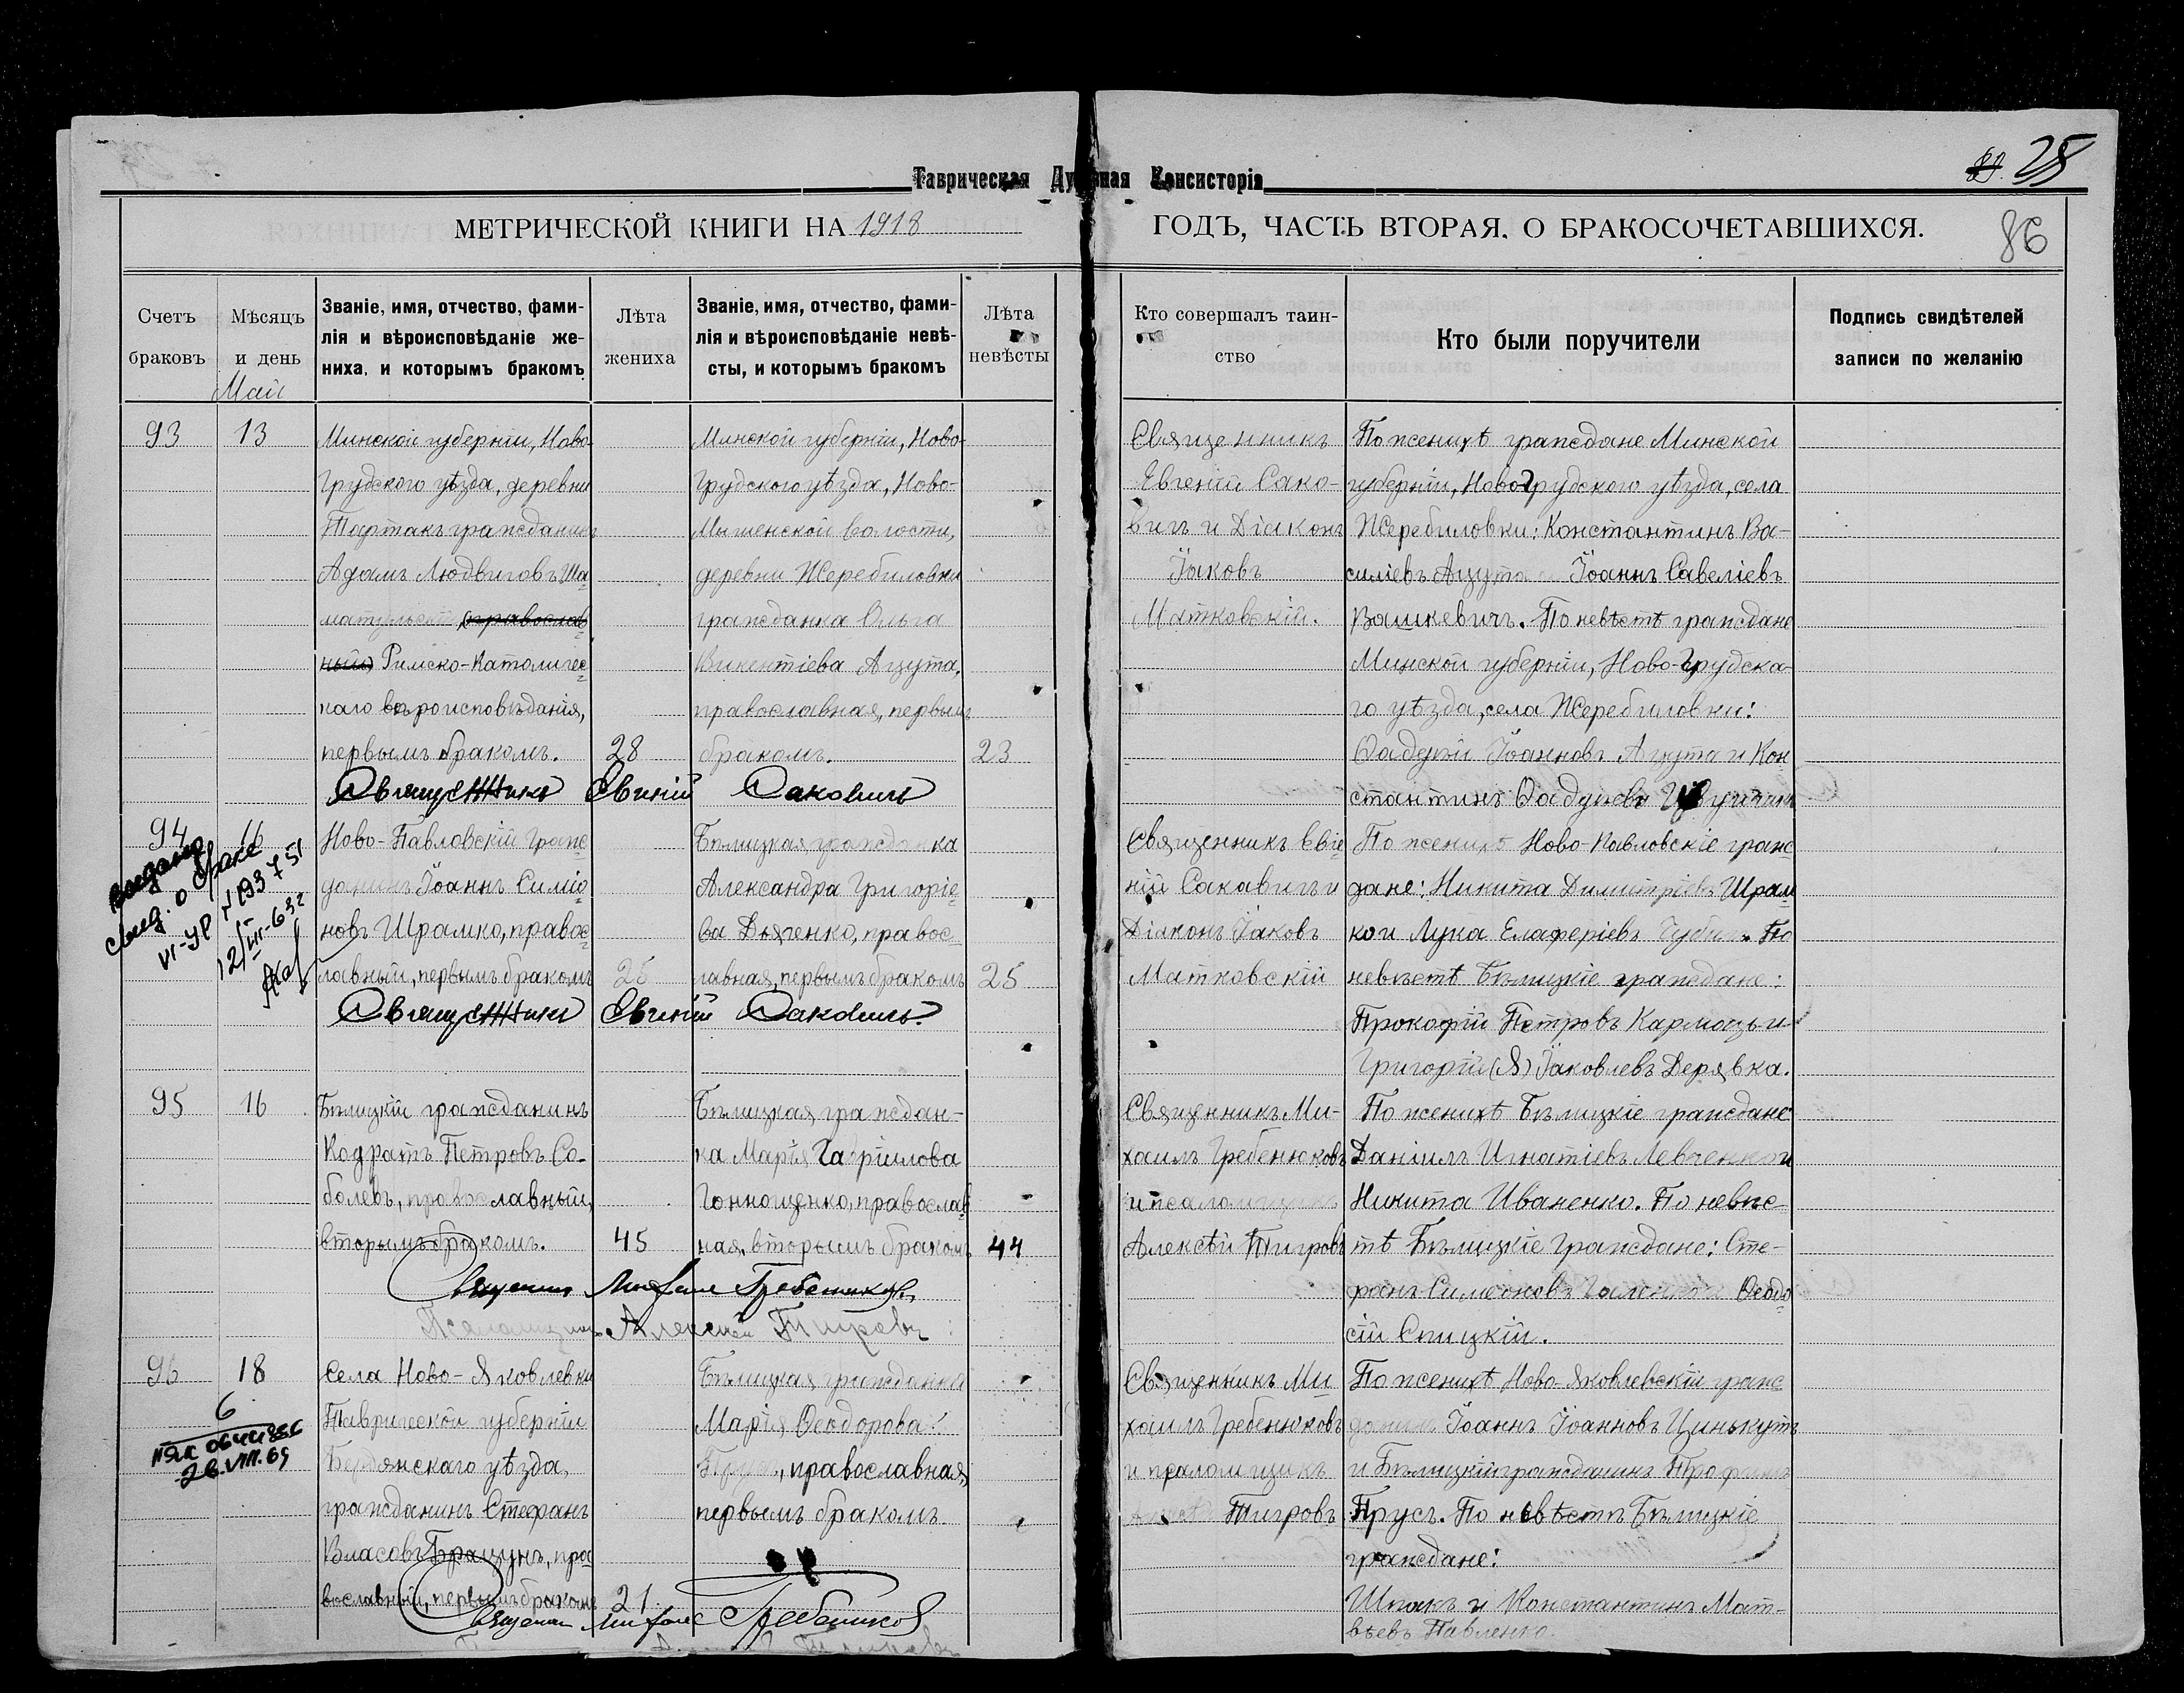 Таврическая Духовная Консисторія
25
МЕТРИЧЕСКОЙ КНИГИ НА 1918
ГОДЪ, ЧАСТЬ ВТОРАЯ, О БРАКОСОЧЕТАВШИХСЯ.
86
Счетъ браковъ
Мѣсяцъ и день
Май
Званіе, имя, отчество, фами-
лія и вѣроисповѣданіе же-
ниха, и которымъ бракомъ
Лѣта
жениха
Званіе, имя, отчество, фами-
лія и вѣроисповѣданіе невѣ-
сты, и которымъ бракомъ
Лѣта
невѣсты
Кто совершалъ таин-
ство
Кто были поручители
Подпись свидѣтелей
записи по желанію
93
13
Минской губерніи, Ново-
Грудского уѣзда, деревни
Тартакъ гражданинъ
Адамъ Людвиговъ Ша-
православ
ный Римско-Католичес
каго вѣроисповѣданія,
первымъ бракомъ.
28
Минской губерніи, Ново-
Грудского уѣзда, Ново-
Мышенской волости,
деревни Жеребиловки
гражданка Ольга
Викентіева Ацута,
православная, первымъ
бракомъ.
23
Священникъ Евгеній Саковичъ
Священникъ
Евгеній Сако-
вичъ и Діаконъ
Іаковъ
Матковскій.
По женихѣ граждане Минской
губерніи, Новогрудского уѣзда, села
Жеребиловки: Константинъ Ва-
силіевъ Ацута и Іоаннъ Савеліевъ
Вашкевичъ. По невѣстѣ граждане
Минской губерніи, Ново-Грудска-
го уѣзда, села Жеребиловки:
Ѳадѣй Іоанновъ Ацута и Кон
стантинъ Ѳадѣевъ
94
16
Выдано
свид. о браке
VI-УР № 193751
12/III-63г
Ново-Павловскій граж
данинъ Іоаннъ Симіо
новъ Шрамко, правос
лавный, первымъ бракомъ
25
Бѣлицкая гражданка
Александра Григоріе
ва Дяченко, правос
лавная, первымъ бракомъ
25
Священникъ Евгеній Саковичъ.
Священникъ Евге
ній Саковичъ и
Діаконъ Іаковъ
Матковскій
По женихѣ Ново-Павловскіе граж
дане: Никита Димитріевъ Шрам
ко и Лука Елаферіевъ По
невѣстѣ Бѣлицкіе граждане:
Прокофій Петровъ Кармазь и
Григорій (Я) Іаковлевъ Дерявка.
95
16
Бѣлицкій гражданинъ
Кодратъ Петровъ Со-
болевъ, православный,
вторымъ бракомъ.
45
Бѣлицкая граждан-
ка Марія Гавріилова
Гонношенко, православ
ная, вторымъ бракомъ
44
Священникъ Михаилъ Гребенюковъ
Псаломщикъ Алексѣй Тигровъ
Священникъ Ми-
хаилъ Гребенюковъ
и псаломщикъ
Алексѣй Тигровъ
По женихѣ Бѣлицкіе граждане
Даніилъ Игнатіевъ Левченко и
Никита Иваненко. По невѣс
тѣ Бѣлицкіе граждане: Сте-
фанъ Симеоновъ Ѳеодо
сій Спицкій.
96
18
6
28.VIII.69
Села Ново-Яковлевки
Таврической губерніи
Бердянскаго уѣзда,
гражданинъ Стефанъ
Власовъ Брацунъ, пра
вославный, первымъ бракомъ
21
Бѣлицкая гражданка
Марія Ѳеодорова
Прусъ, православная,
первымъ бракомъ.
Священникъ Михаилъ Гребенюковъ
Священникъ Ми
хаилъ Гребенюковъ
и псаломщикъ
Тигровъ
По женихѣ Ново-Яковлевскій граж
данинъ Іоаннъ Іоанновъ Цинькутъ
и Бѣлицкій гражданинъ Трофимъ
Прусъ. По невѣстѣ Бѣлицкіе
граждане:
Шпакъ и Константинъ Мат-
вѣевъ Павленко.